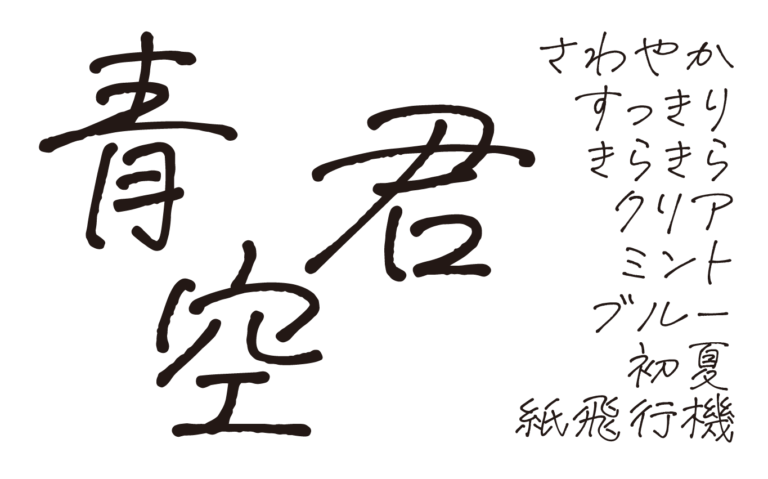 青空君
さわやか
すっきり
きらきら
クリア
ミント
ブルー
初夏
紙飛行機